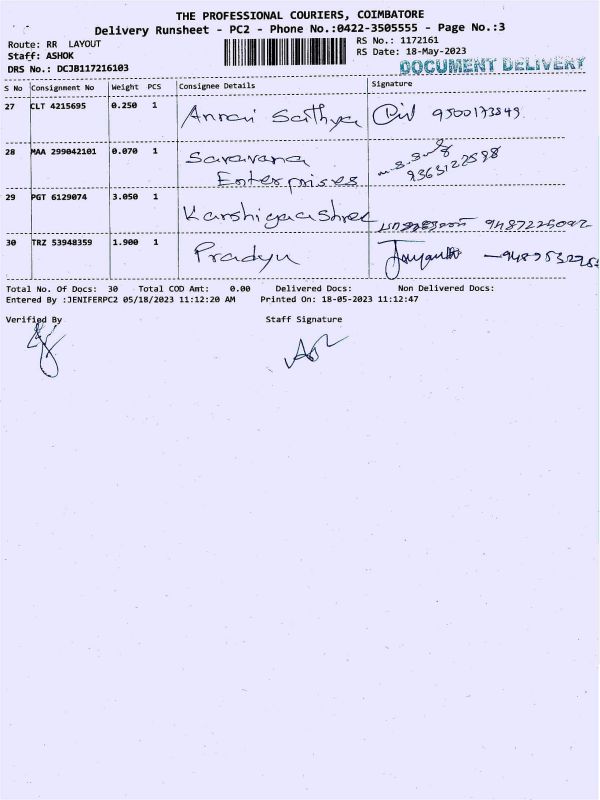 THE PROFESSIONAL COURIERS, COIMBATORE
Delivery Runsheet - PC2 - Phone No.:0422-3505555 - Page No.:3
Route: RR LAYOUT
Staff: ASHOK
DRS No.: DCJB117216103
RS No.: 1172161
RS Date: 18-May-2023
DOCUMENT DELIVERY
S No Consignment No Weight PCS Consignee Details Signature
27 CLT 4215695 0.250 1 Annai Sathya 9500173849
28 MAA 299042101 0.070 1 Saravana Enterprises 9363122598
29 PGT 6129074 3.050 1 9487225092
30 TRZ 53948359 1.900 1 Pradyu
Total No. Of Docs: 30 Total COD Amt: 0.00 Delivered Docs: Non Delivered Docs:
Entered By :JENIFERPC2 05/18/2023 11:12:20 AM Printed On: 18-05-2023 11:12:47
Verified By Staff Signature